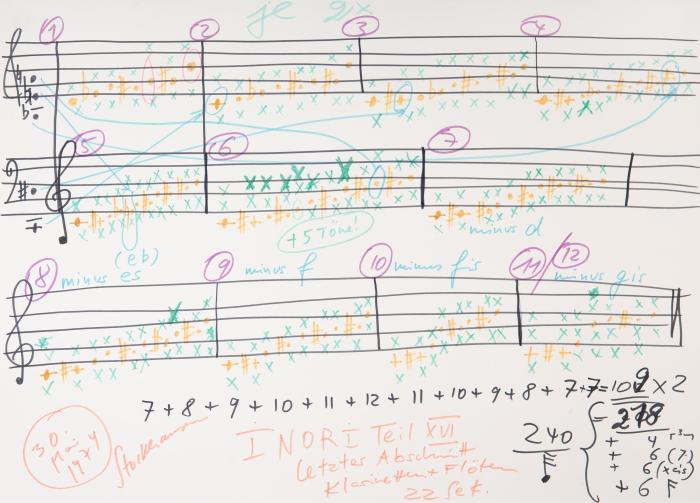 je gix
1 2 3 4
5 6 7
+5 Töne!
minus d
(eb)
8 minus es 9 minus f 10 minus fis 11/12 minus gis
7 + 8 + 9 + 10 + 11 + 12 + 11 + 10 + 9 + 8 + 7 = 109 x 2
= 218
240
+ 4
+ 6 (7)
+ 6
+ 6
30.
Mai
1974
Stockhausen
INORI Teil XVI
letztes Abschnitt
Klarinetten + Flöten
22 Sek.